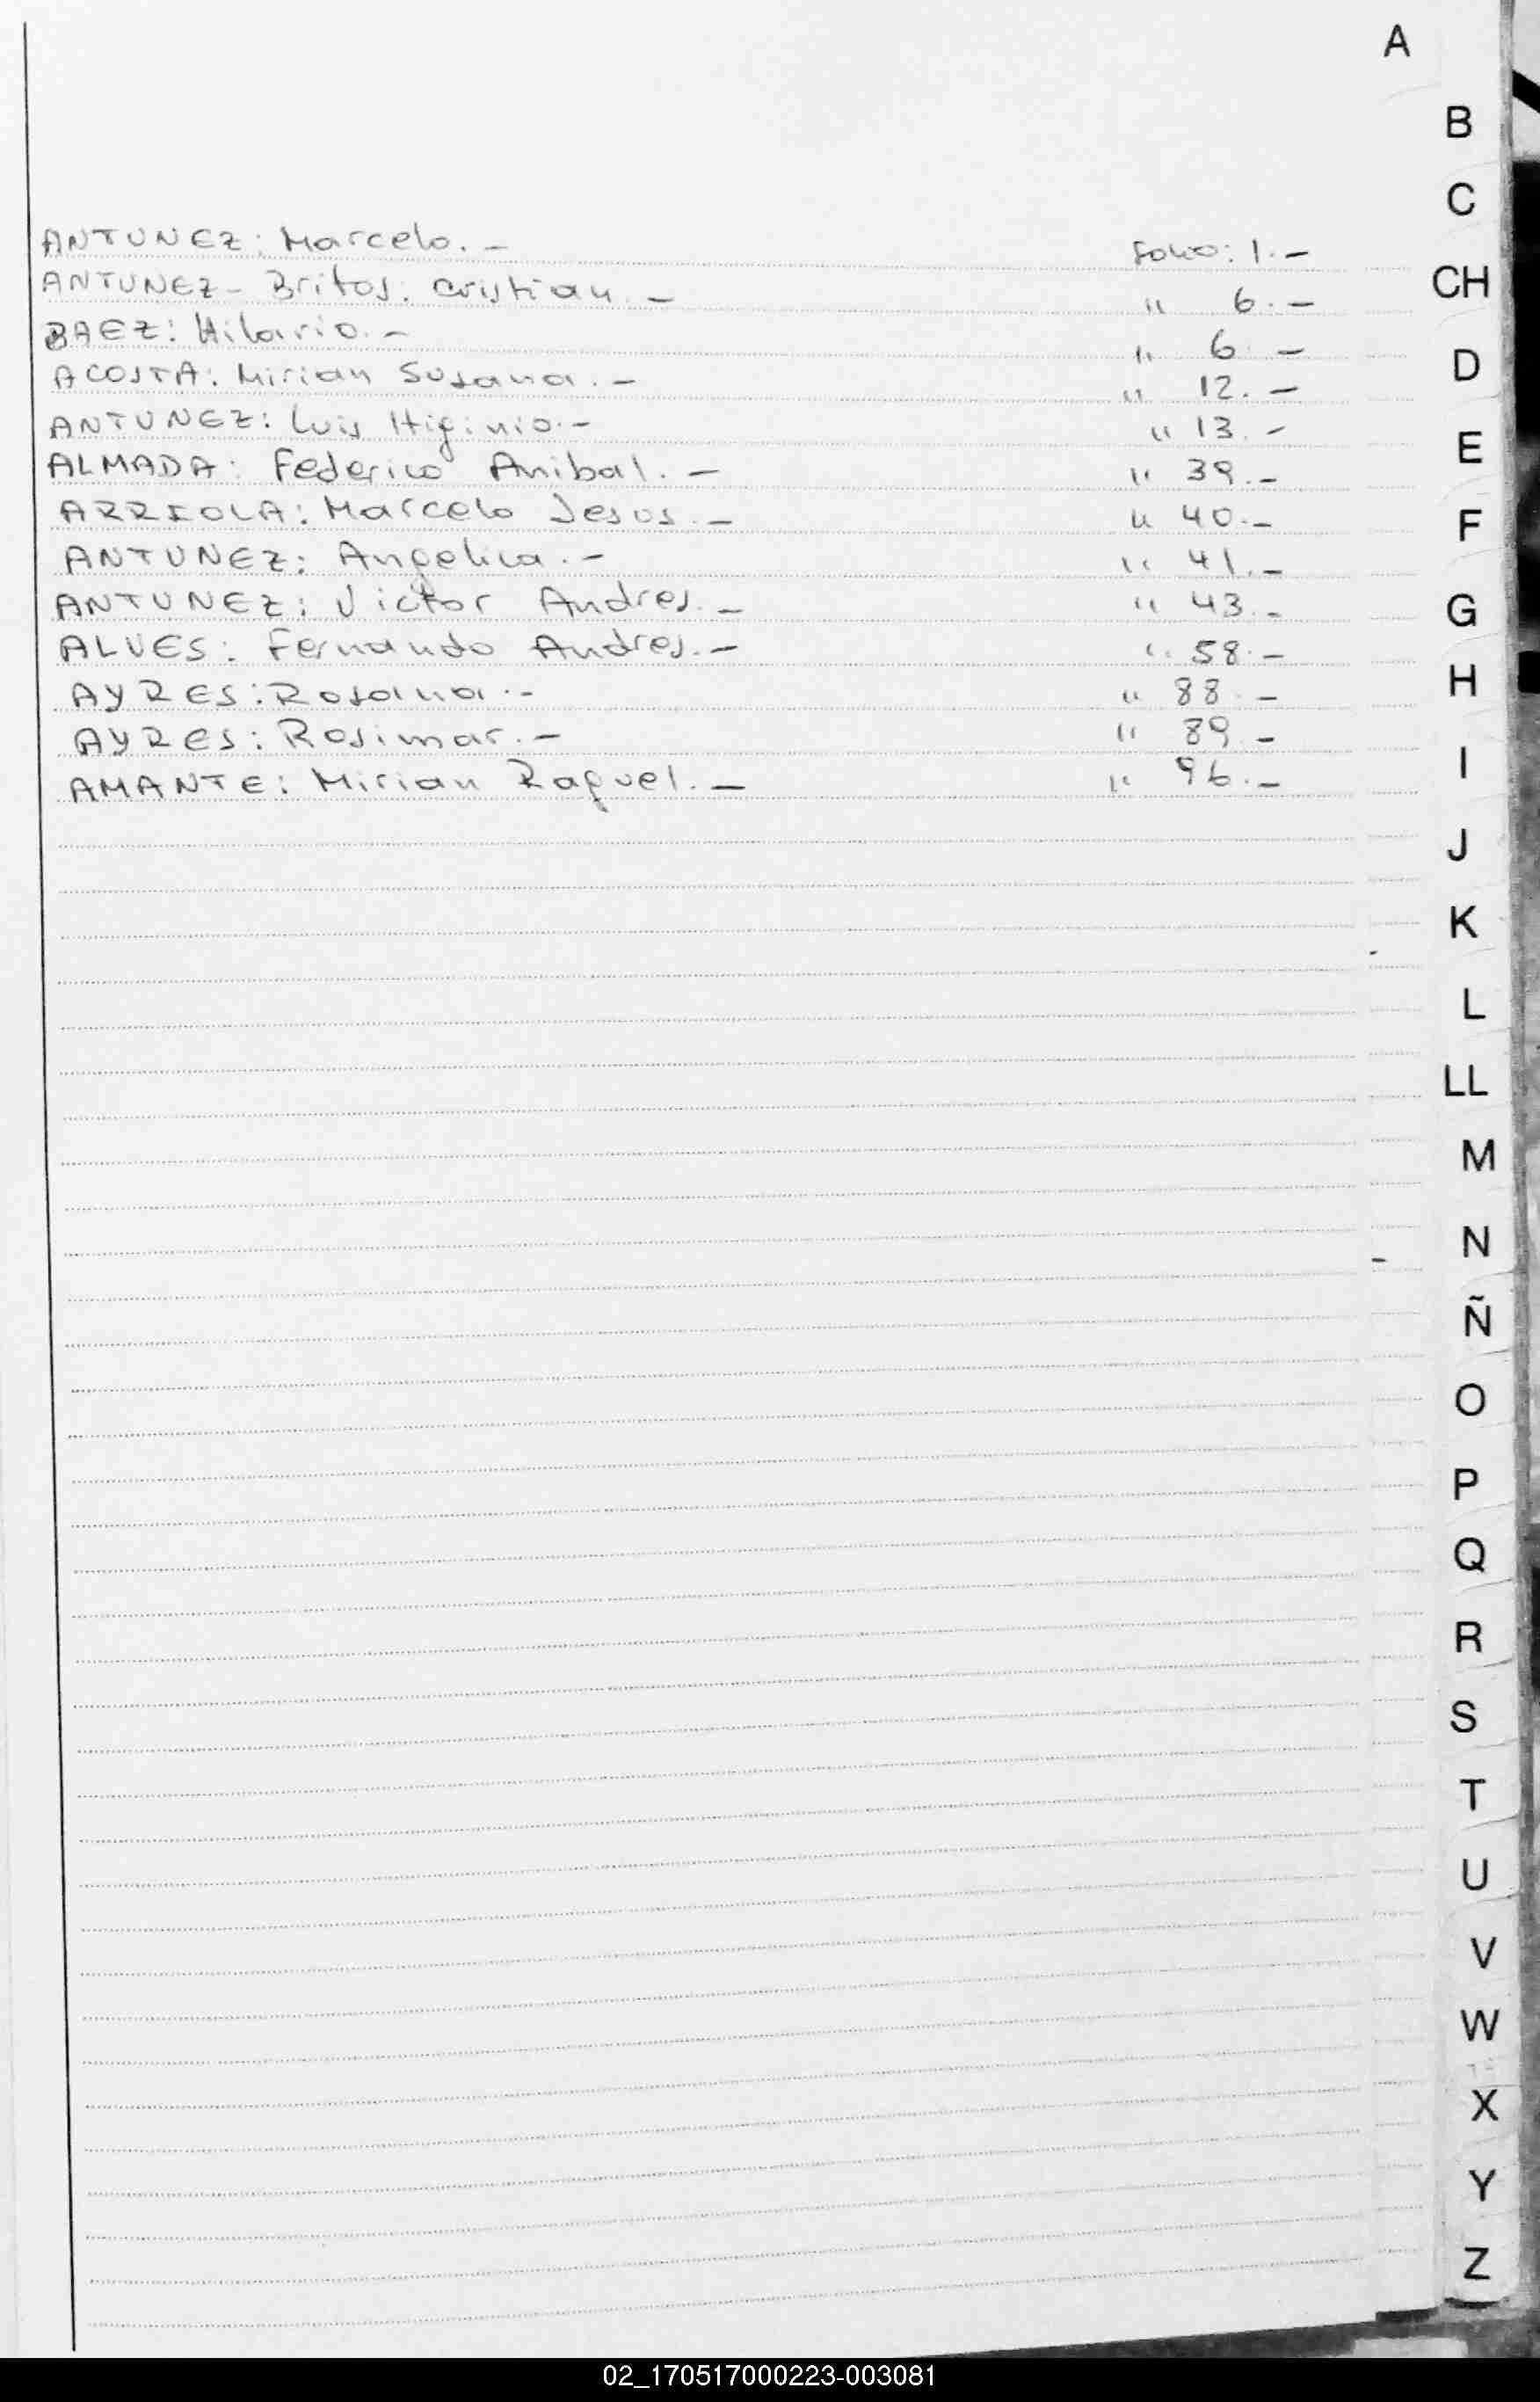 A
B
C
ANTUNEZ: Marcelo.- Folio: 1.-
CH
ANTUNEZ- Britos: Cristian.- " 6.-
BAEZ: Hilario.- " 6.-
D
ACOSTA: Mirian Susana.- " 12.-
ANTUNEZ: Luis Higinio.- " 13.-
E
ALMADA: Federico Anibal.- " 39.-
ARRIOLA: Marcelo Jesus.- " 40.-
F
ANTUNEZ: Angelica.- " 41.-
ANTUNEZ: Victor Andres.- " 43.-
G
ALVES: Fernando Andres.- " 58.-
H
AYRES: Rosana.- " 88.-
AYRES: Rosimar.- " 89.-
I
AMANTE: Mirian Raquel.- " 96.-
J
K
L
LL
M
N
Ñ
O
P
Q
R
S
T
U
V
W
X
Y
Z
02_170517000223-003081